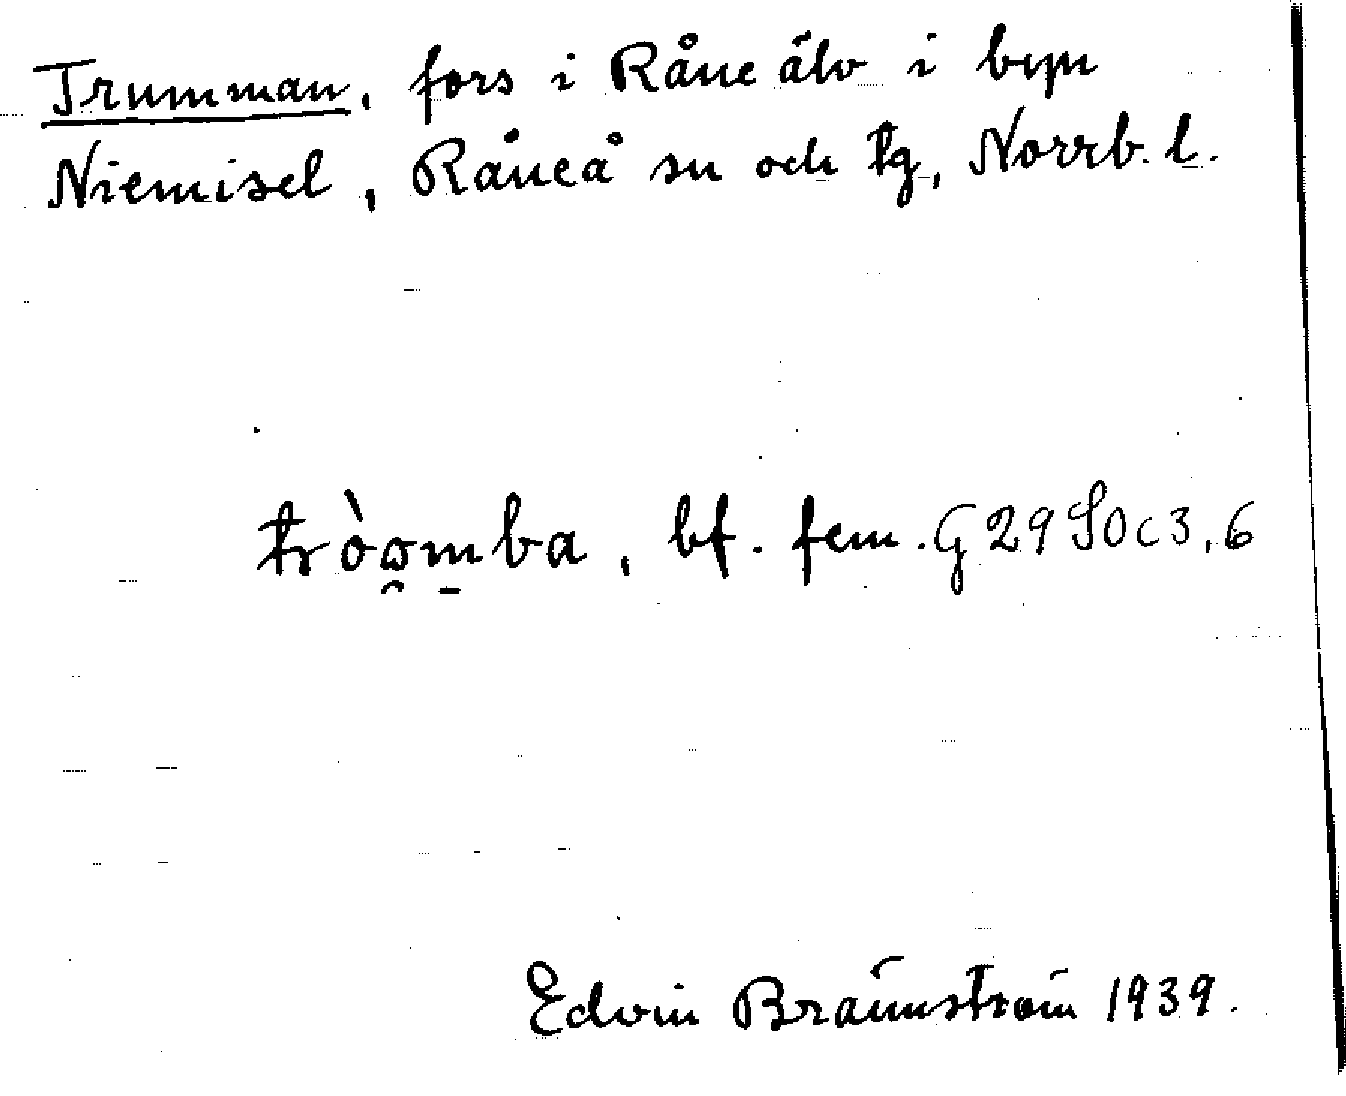 Trumman, fors i Råne älv i byn
Niemisel, Råneå sn och tg, Norrb. l.
tròo̯m̱ba, bf. fem. G 29 SOc 3, 6
Edvin Brännström 1939.